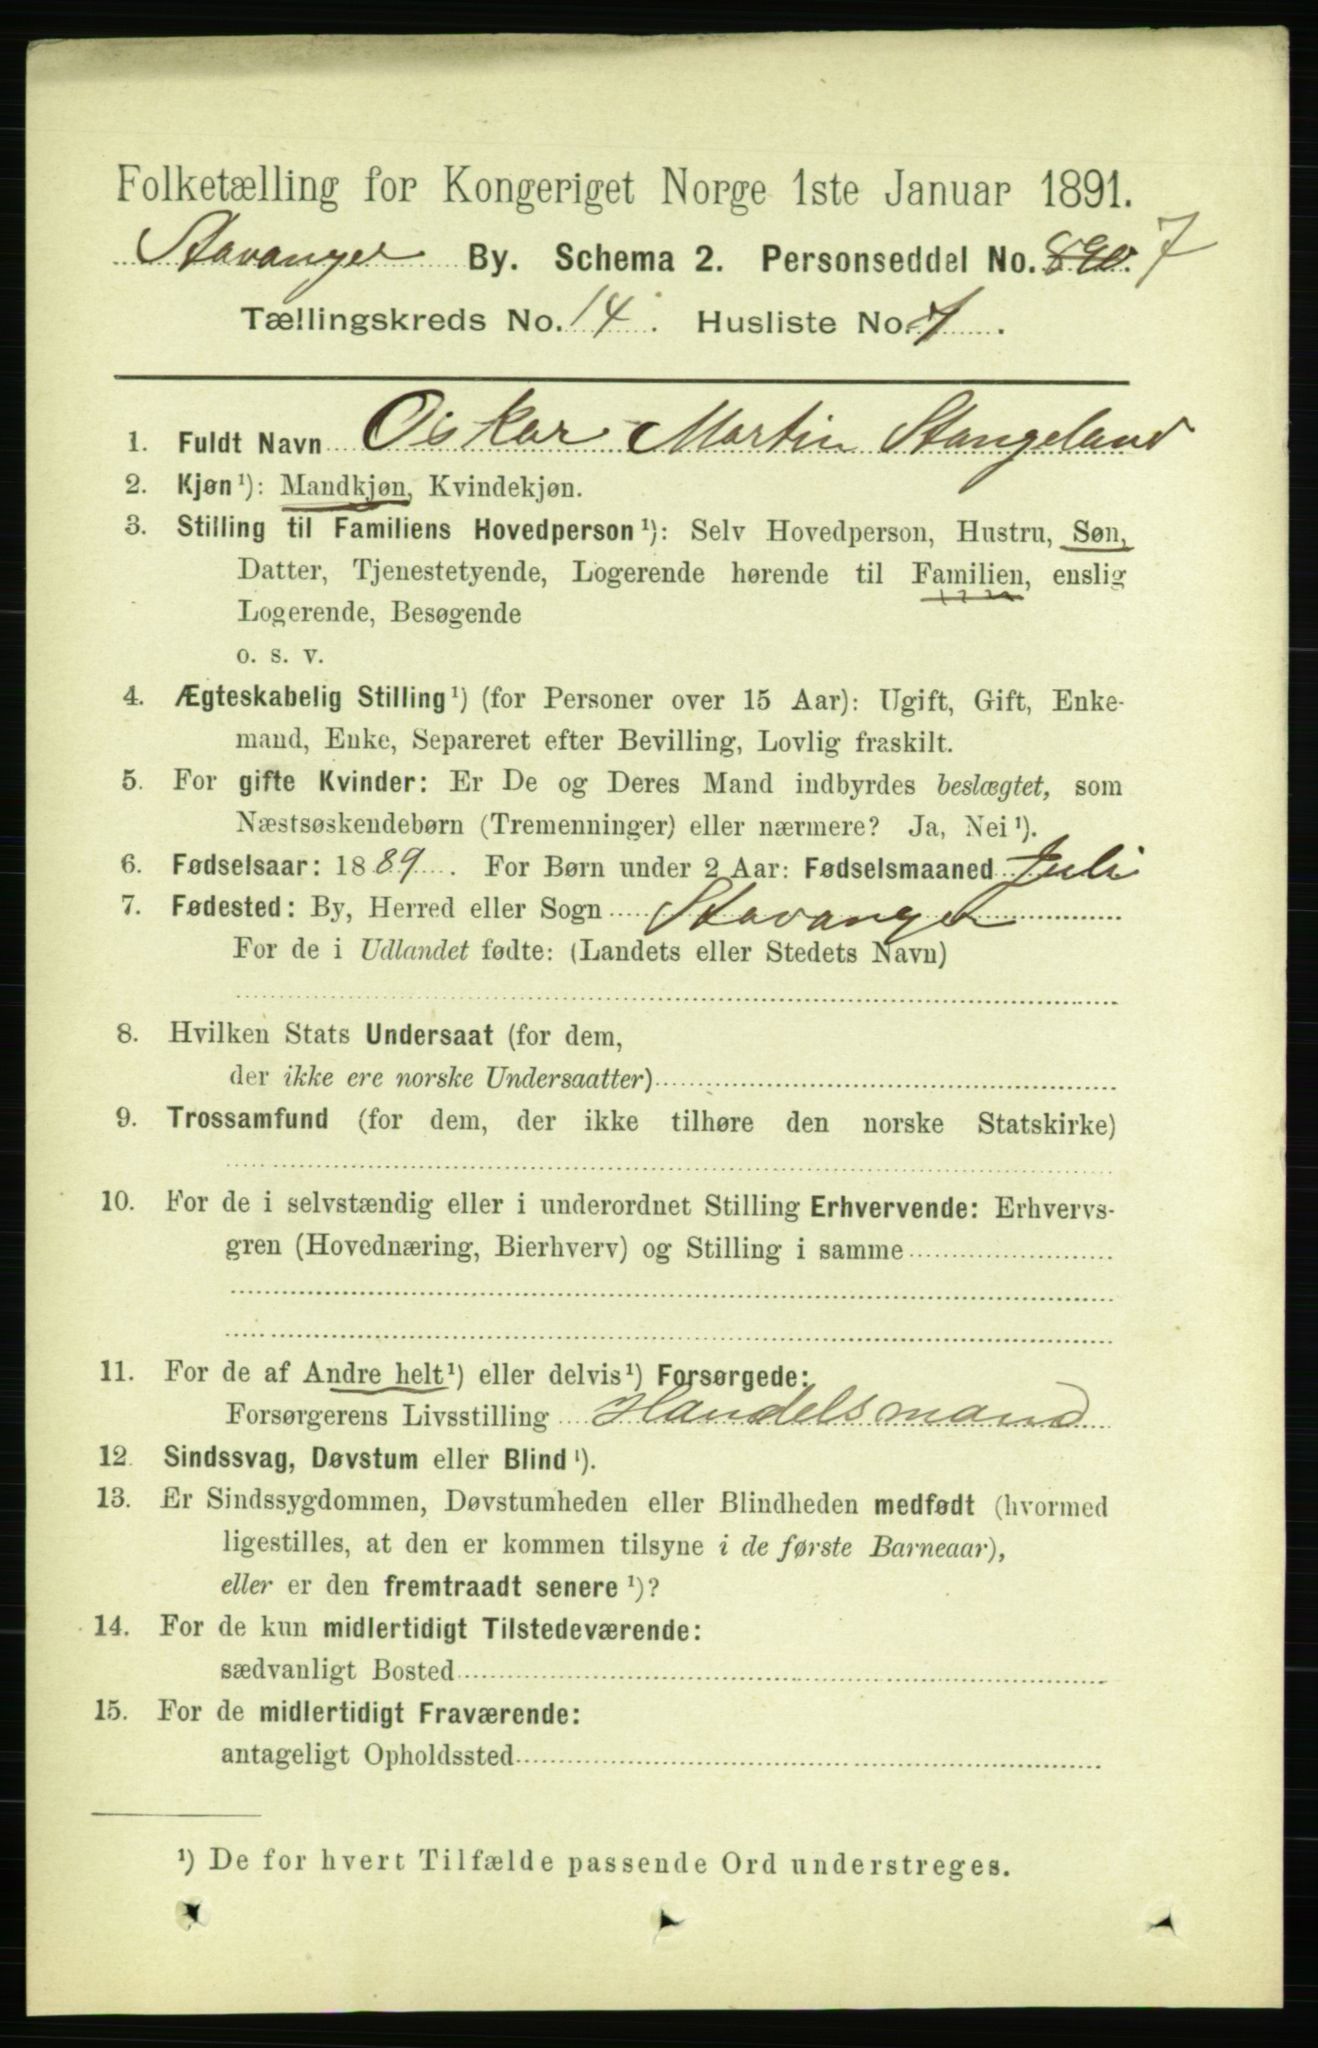 Folketælling for Kongeriget Norge 1ste Januar 1891.
Stavanger By. Schema 2. Personseddel No. 890. 7
Tællingskreds No. 14. Husliste No. 7.
1. Fuldt Navn Oskar Martin Stangeland
2. Kjøn¹): Mandkjøn, Kvindekjøn.
3. Stilling til Familiens Hovedperson¹): Selv Hovedperson, Hustru, Søn,
Datter, Tjenestetyende, Logerende hørende til Familien, enslig
Logerende, Besøgende
o. s. v.
4. Ægteskabelig Stilling¹) (for Personer over 15 Aar): Ugift, Gift, Enke-
mand, Enke, Separeret efter Bevilling, Lovlig fraskilt.
5. For gifte Kvinder: Er De og Deres Mand indbyrdes beslægtet, som
Næstsøskendebørn (Tremenninger) eller nærmere? Ja, Nei¹).
6. Fødselsaar: 1889. For Børn under 2 Aar: Fødselsmaaned Juli
7. Fødested: By, Herred eller Sogn Stavanger
For de i Udlandet fødte: (Landets eller Stedets Navn)
8. Hvilken Stats Undersaat (for dem,
der ikke ere norske Undersaatter)
9. Trossamfund (for dem, der ikke tilhøre den norske Statskirke)
10. For de i selvstændig eller i underordnet Stilling Erhvervende: Erhvervs-
gren (Hovednæring, Bierhverv) og Stilling i samme
11. For de af Andre helt¹) eller delvis¹) Forsørgede:
Forsørgerens Livsstilling Handelsmand
12 Sindssvag, Døvstum eller Blind¹).
13. Er Sindssygdommen, Døvstumheden eller Blindheden medfødt (hvormed
ligestilles, at den er kommen tilsyne i de første Barneaar),
eller er den fremtraadt senere¹)?
14. For de kun midlertidigt Tilstedeværende:
sædvanligt Bosted
15. For de midlertidigt Fraværende:
antageligt Opholdssted
¹) De for hvert Tilfælde passende Ord understreges.